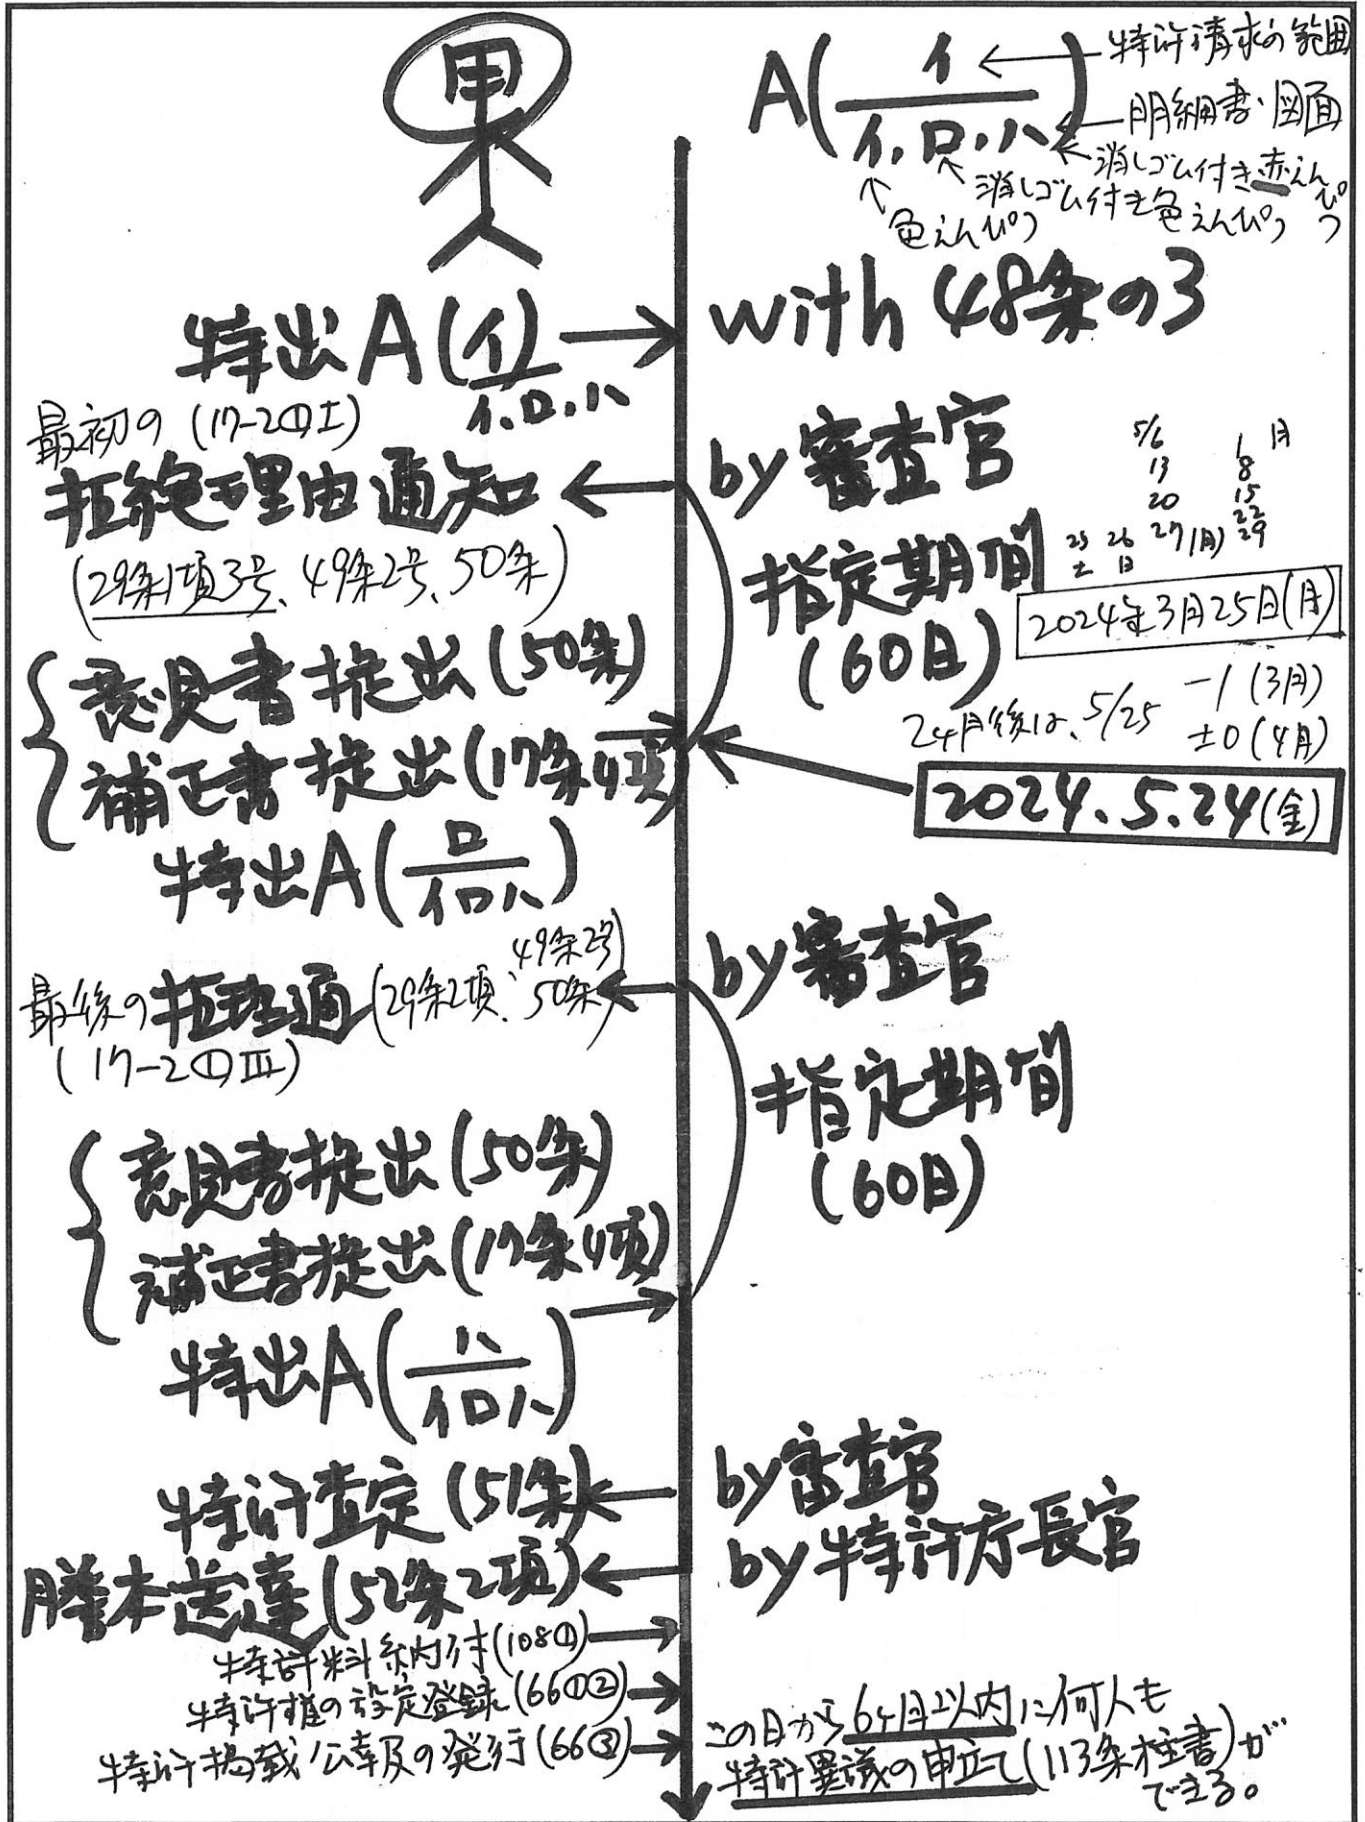 甲
A(イ/イ,ロ,ハ)
←特許請求の範囲
←明細書・図面
←消しゴム付き赤えんぴつ
消しゴム付き色えんぴつ
色えんぴつ
特出A(イ/イ,ロ,ハ)→
with 48条の3
最初の(17-2①I)
拒絶理由通知←
by 審査官
(29条1項3号、49条2号、50条)
5/6
13
20
27(月)
25 土
26 日
1 月
8
15
22
29
指定期間
(60日)
2024年3月25日(月)
2ヶ月後は、5/25
-1 (3月)
±0 (4月)
2024.5.24(金)
意見書提出(50条)
補正書提出(17条4項)→
特出A(ロ/イロハ)
最後の拒理通(29条2項、49条2号、50条)←
(17-2①III)
by審査官
指定期間
(60日)
意見書提出(50条)
補正書提出(17条4項)
→
特出A(ハ/イロハ)
特許査定(51条)←
by審査官
謄本送達(52条2項)←
by特許庁長官
特許料納付(108①)→
特許権の設定登録(66①②)→
特許掲載公報の発行(66③)→
この日から6ヶ月以内に何人も
特許異議の申立て(113条柱書)が
できる。